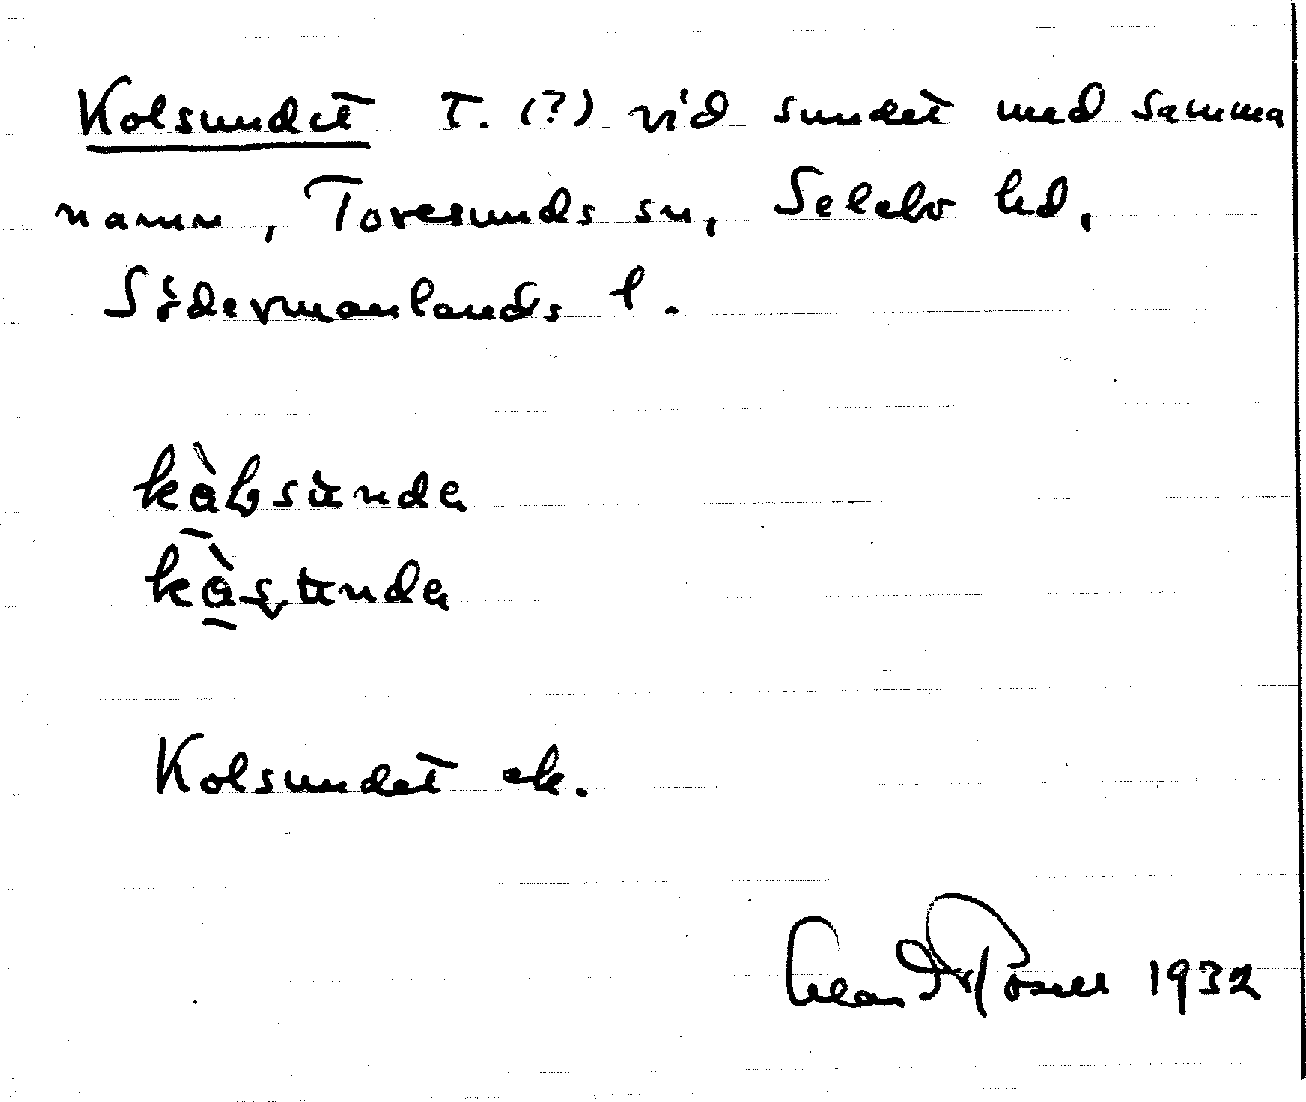 Kolsundet T. (?) vid sundet med samma
namn, Toresunds sn, Selebo hd,
Södermanlands l.
kàlsùnda
kàsunda
Kolsundet ek.
1932